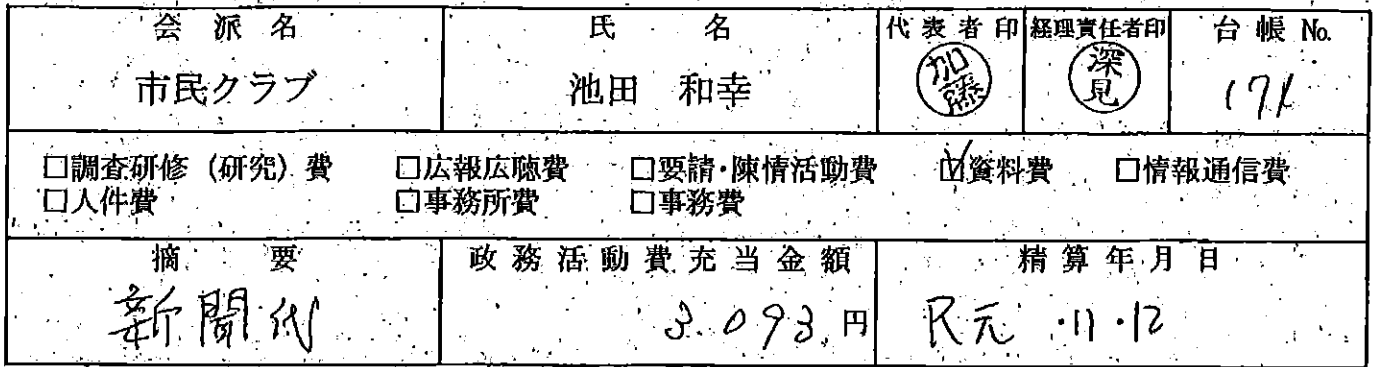 会派名 氏名 代表者印 経理責任者印 台帳 No.
市民クラブ 池田 和幸 加藤 深見 171
□調査研修（研究）費 □広報広聴費 □要請・陳情活動費 ☑資料費 □情報通信費
□人件費 □事務所費 □事務費
摘要 政務活動費充当金額 精算年月日
新聞代 3.093円 R元・11・12